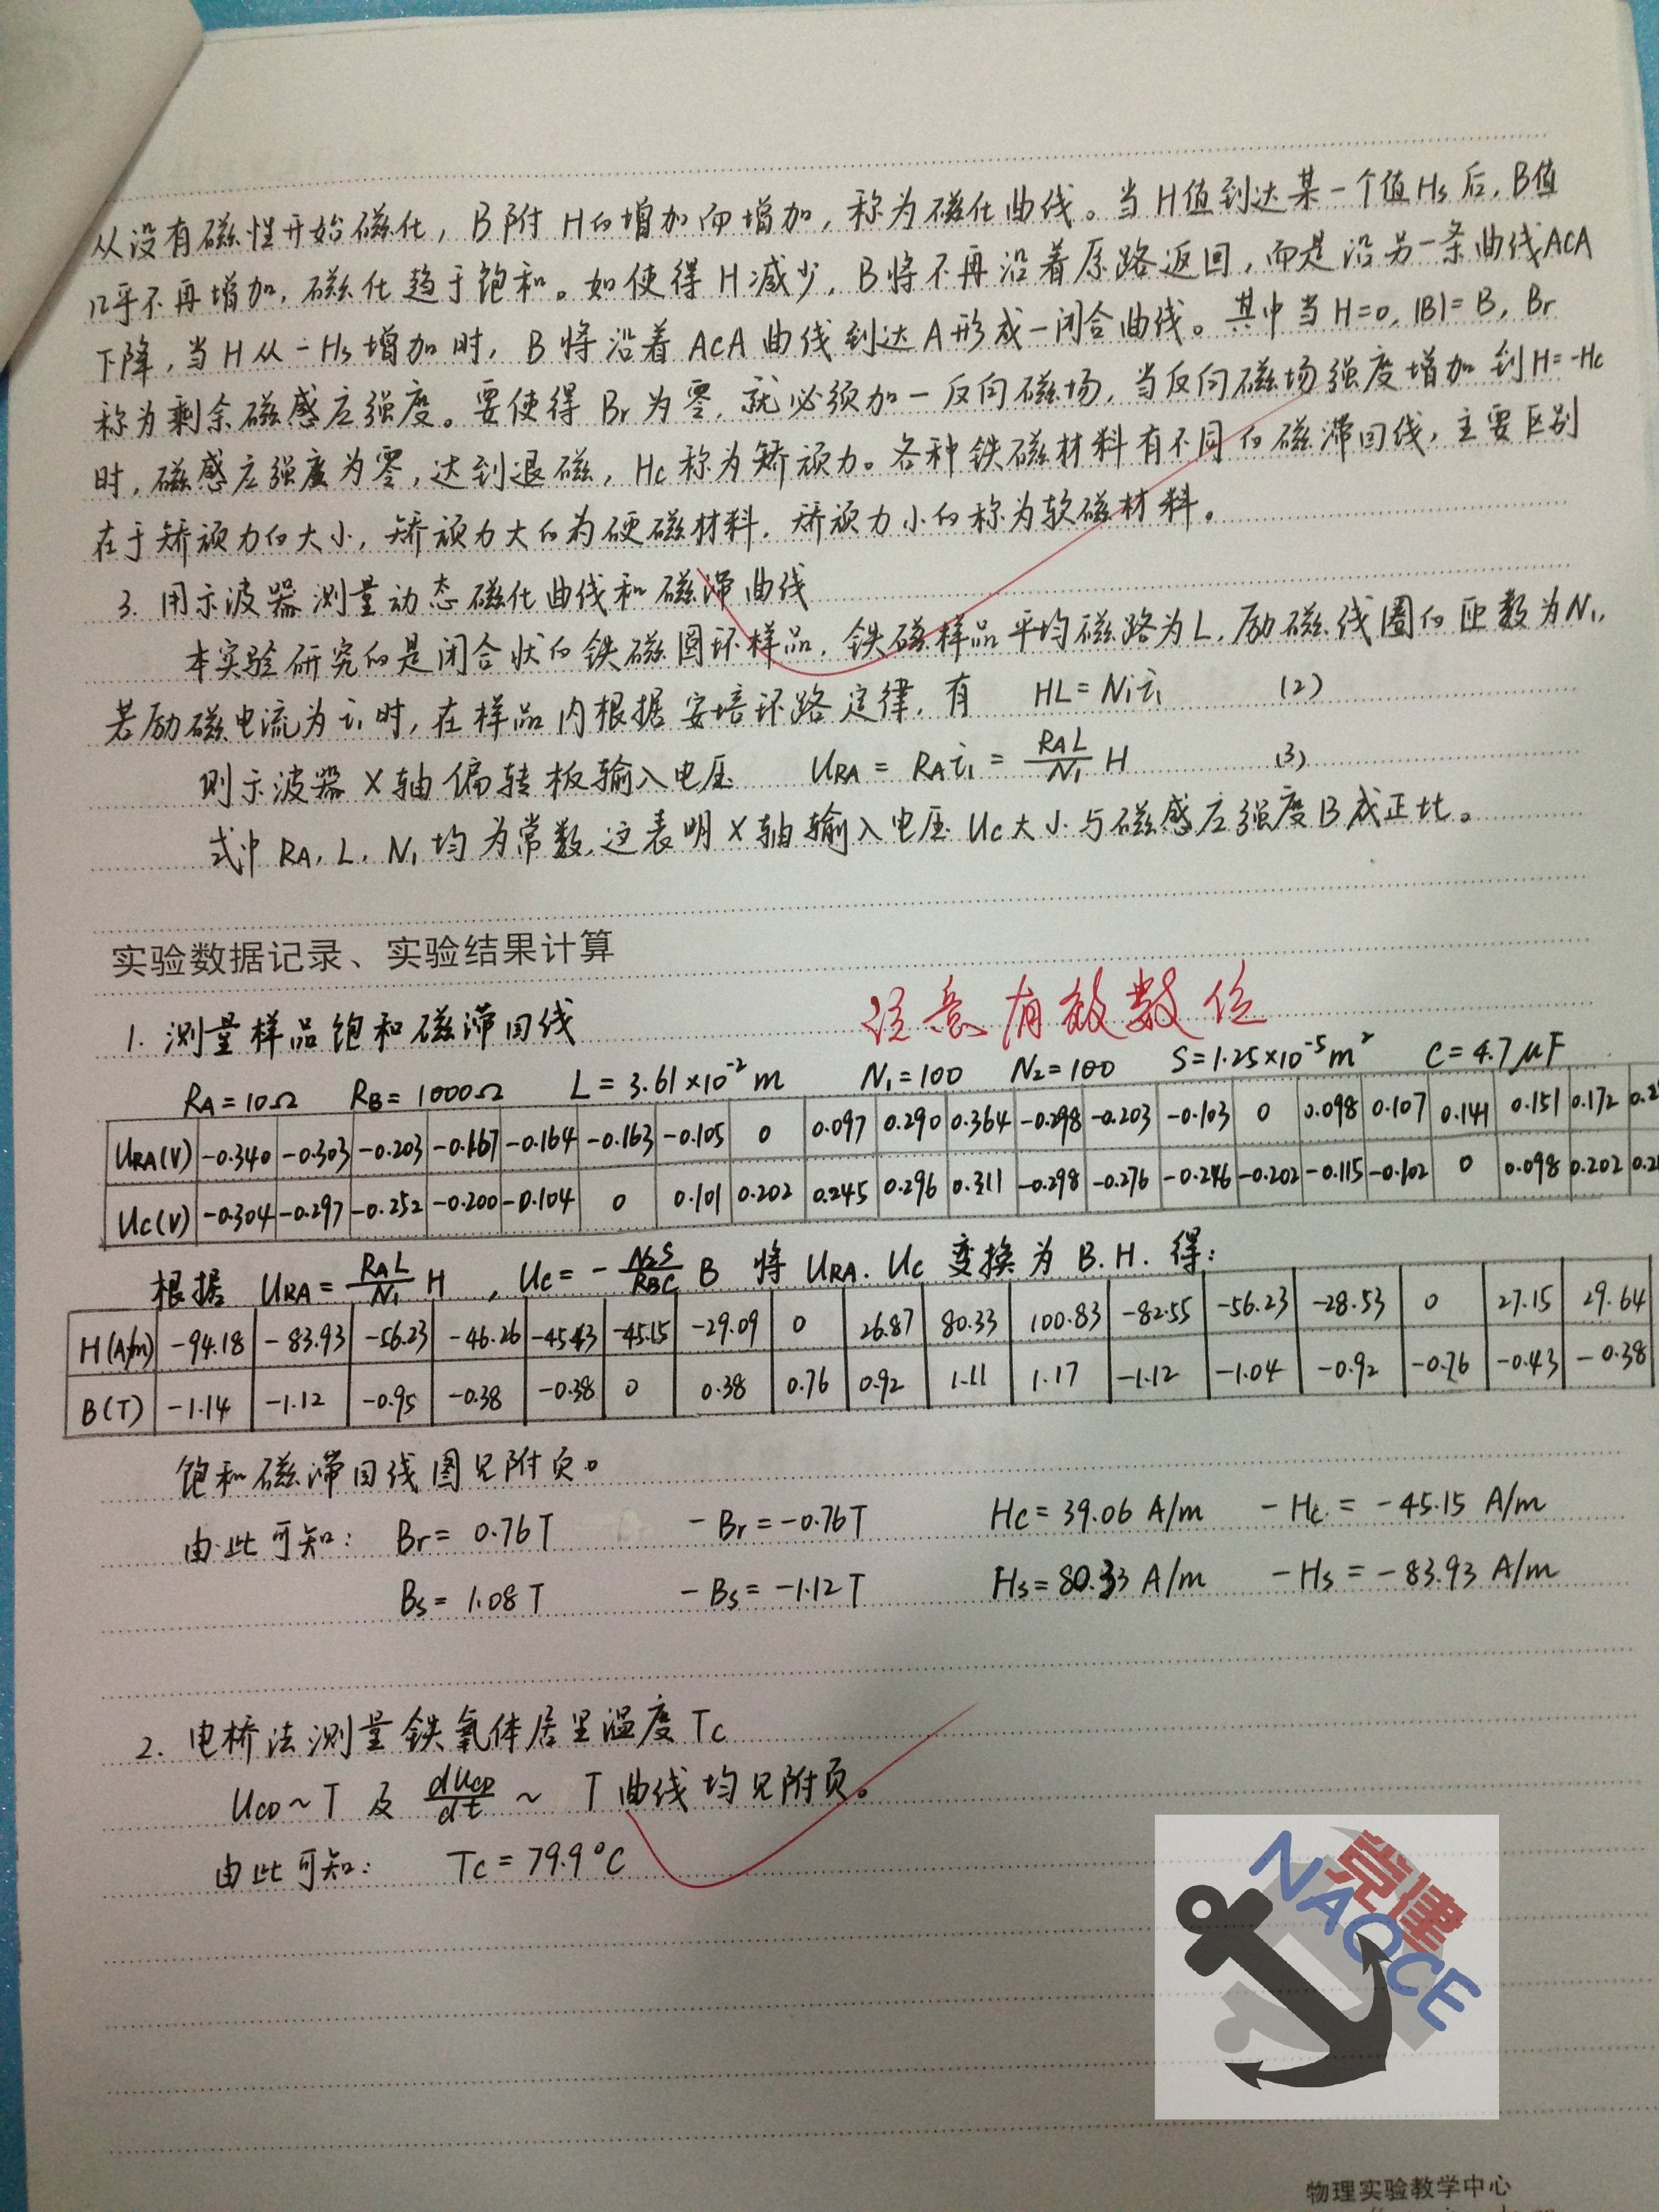 从没有磁性开始磁化，B附H的增加而增加，称为磁化曲线。当H值到达某一个值Hs后，B值
几乎不再增加，磁化趋于饱和。如使得H减少，B将不再沿着原路返回，而是沿另一条曲线ACA
下降，当H从-Hs增加时，B将沿着ACA曲线到达A形成一闭合曲线。其中当H=0，|B|=B，Br
称为剩余磁感应强度。要使得Br为零，就必须加一反向磁场，当反向磁场强度增加到H=-Hc
时，磁感应强度为零，达到退磁，Hc称为矫顽力。各种铁磁材料有不同的磁滞回线，主要区别
在于矫顽力的大小，矫顽力大的为硬磁材料，矫顽力小的称为软磁材料。
3. 用示波器测量动态磁化曲线和磁滞曲线
本实验研究的是闭合状的铁磁圆环样品，铁磁样品平均磁路为L，励磁线圈的匝数为N₁，
若励磁电流为i₁时，在样品内根据安培环路定律，有 HL=N₁i₁ (2)
则示波器X轴偏转板输入电压 URA = RAi₁ = RAL/N₁ H (3)
式中RA，L，N₁均为常数，这表明X轴输入电压Uc大小与磁感应强度B成正比。
实验数据记录、实验结果计算
注意有效数位
1. 测量样品饱和磁滞回线
RA=10Ω RB=1000Ω L=3.61×10⁻²m N₁=100 N₂=100 S=1.25×10⁻⁵m² C=4.7μF
URA(V) -0.340 -0.303 -0.203 -0.167 -0.164 -0.163 -0.105 0 0.097 0.290 0.364 -0.298 -0.203 -0.103 0 0.098 0.107 0.141 0.151 0.172
Uc(V) -0.304 -0.297 -0.252 -0.200 -0.104 0 0.101 0.202 0.245 0.296 0.311 -0.298 -0.276 -0.246 -0.202 -0.115 -0.102 0 0.098 0.202
根据 URA = RAL/N₁ H , Uc = - N₂S/RBC B 将URA. Uc 变换为B.H.得：
H(A/m) -94.18 -83.93 -56.23 -46.26 -45.43 -45.15 -29.09 0 26.87 80.33 100.83 -82.55 -56.23 -28.53 0 27.15 29.64
B(T) -1.14 -1.12 -0.95 -0.38 -0.38 0 0.38 0.76 0.92 1.11 1.17 -1.12 -1.04 -0.92 -0.76 -0.43 -0.38
饱和磁滞回线图见附页。
由此可知： Br= 0.76T -Br=-0.76T Hc=39.06 A/m -Hc = -45.15 A/m
Bs= 1.08T -Bs=-1.12T Hs=80.33 A/m -Hs = -83.93 A/m
2. 电桥法测量铁氧体居里温度Tc
UCD~T 及 dUCD/dt ~ T曲线均见附页。
由此可知： Tc=79.9°C
党建
NAOCE
物理实验教学中心